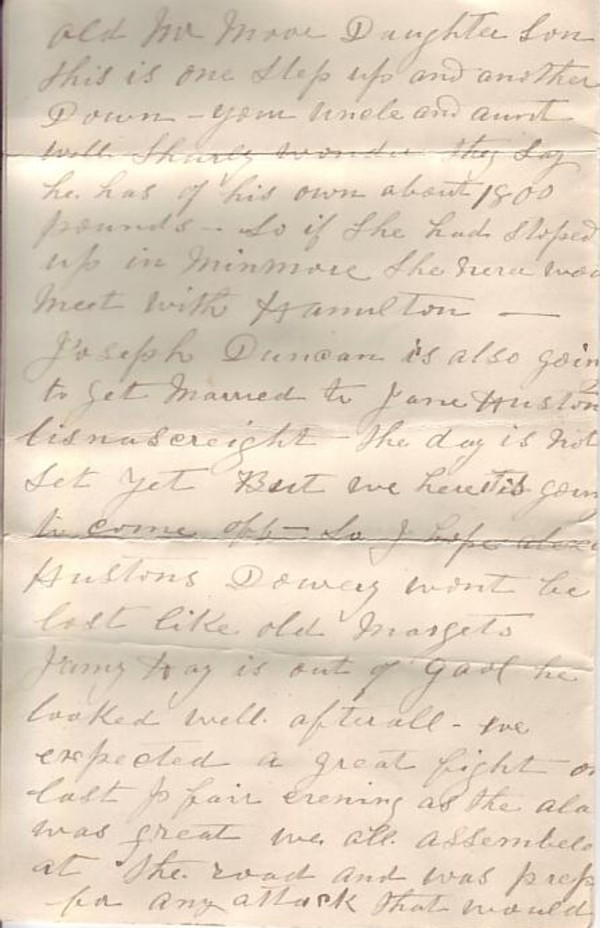 old Mr Moore Daughter Son
this is one step up and another
Down - your uncle and aunt
will Shurly wonder they Say
he has of his own about 1800
pounds - So if She had Stoped
up in Minmore She nera wou
Meet with Hamilton —
Joseph Duncan is also goin
to get Married to Jane Huston
lisnascreight - the day is not
Set yet But we here its going
to come off - So I hope
Hustons Dowery wont be
lost like old Margets
Jamy Hay is out of Gaol he
looked well after all - we
expected a great fight on
last fair evening as the ala
was great we all assembele
at the road and was prep
for any attack that would